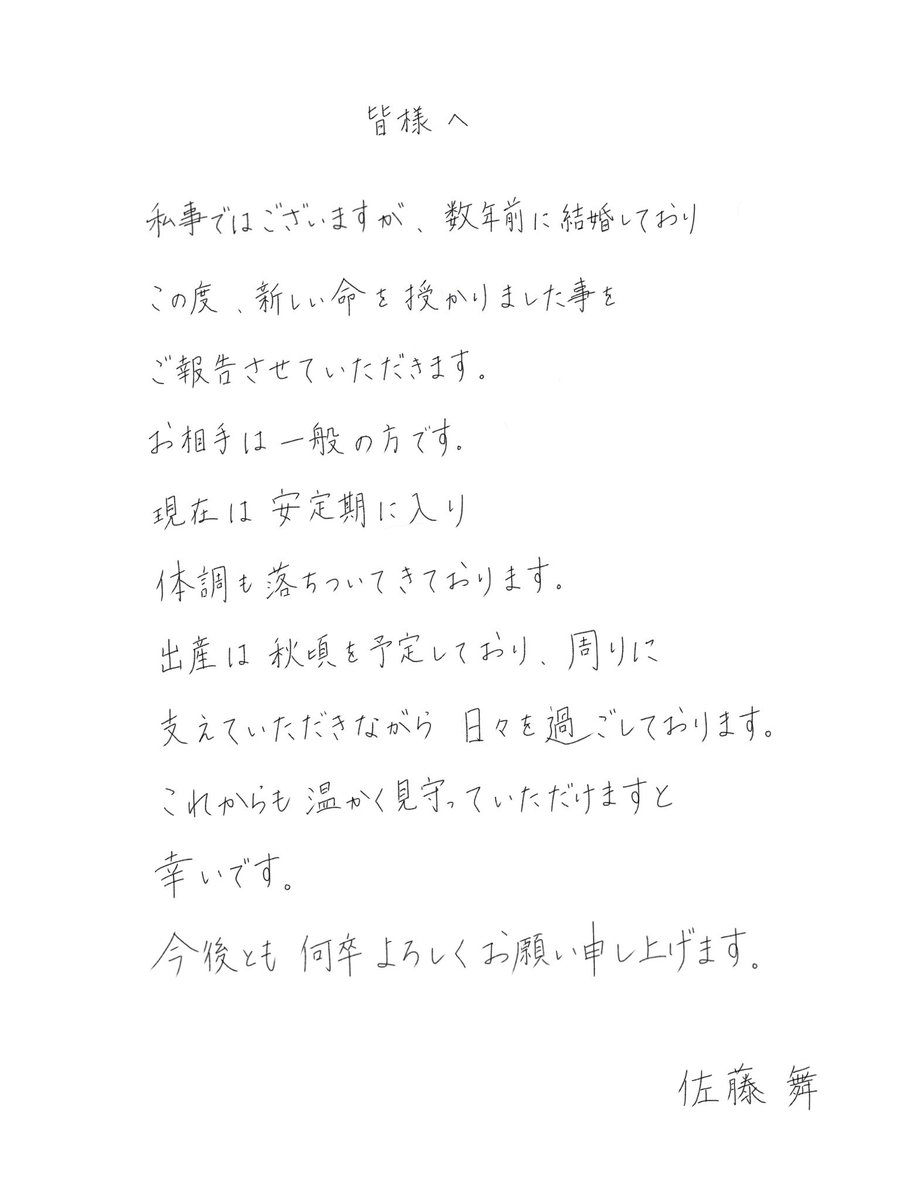 皆様へ
私事ではございますが、数年前に結婚しており
この度、新しい命を授かりました事を
ご報告させていただきます。
お相手は一般の方です。
現在は安定期に入り
体調も落ちついてきております。
出産は秋頃を予定しており、周りに
支えていただきながら日々を過ごしております。
これからも温かく見守っていただけますと
幸いです。
今後とも何卒よろしくお願い申し上げます。
佐藤 舞